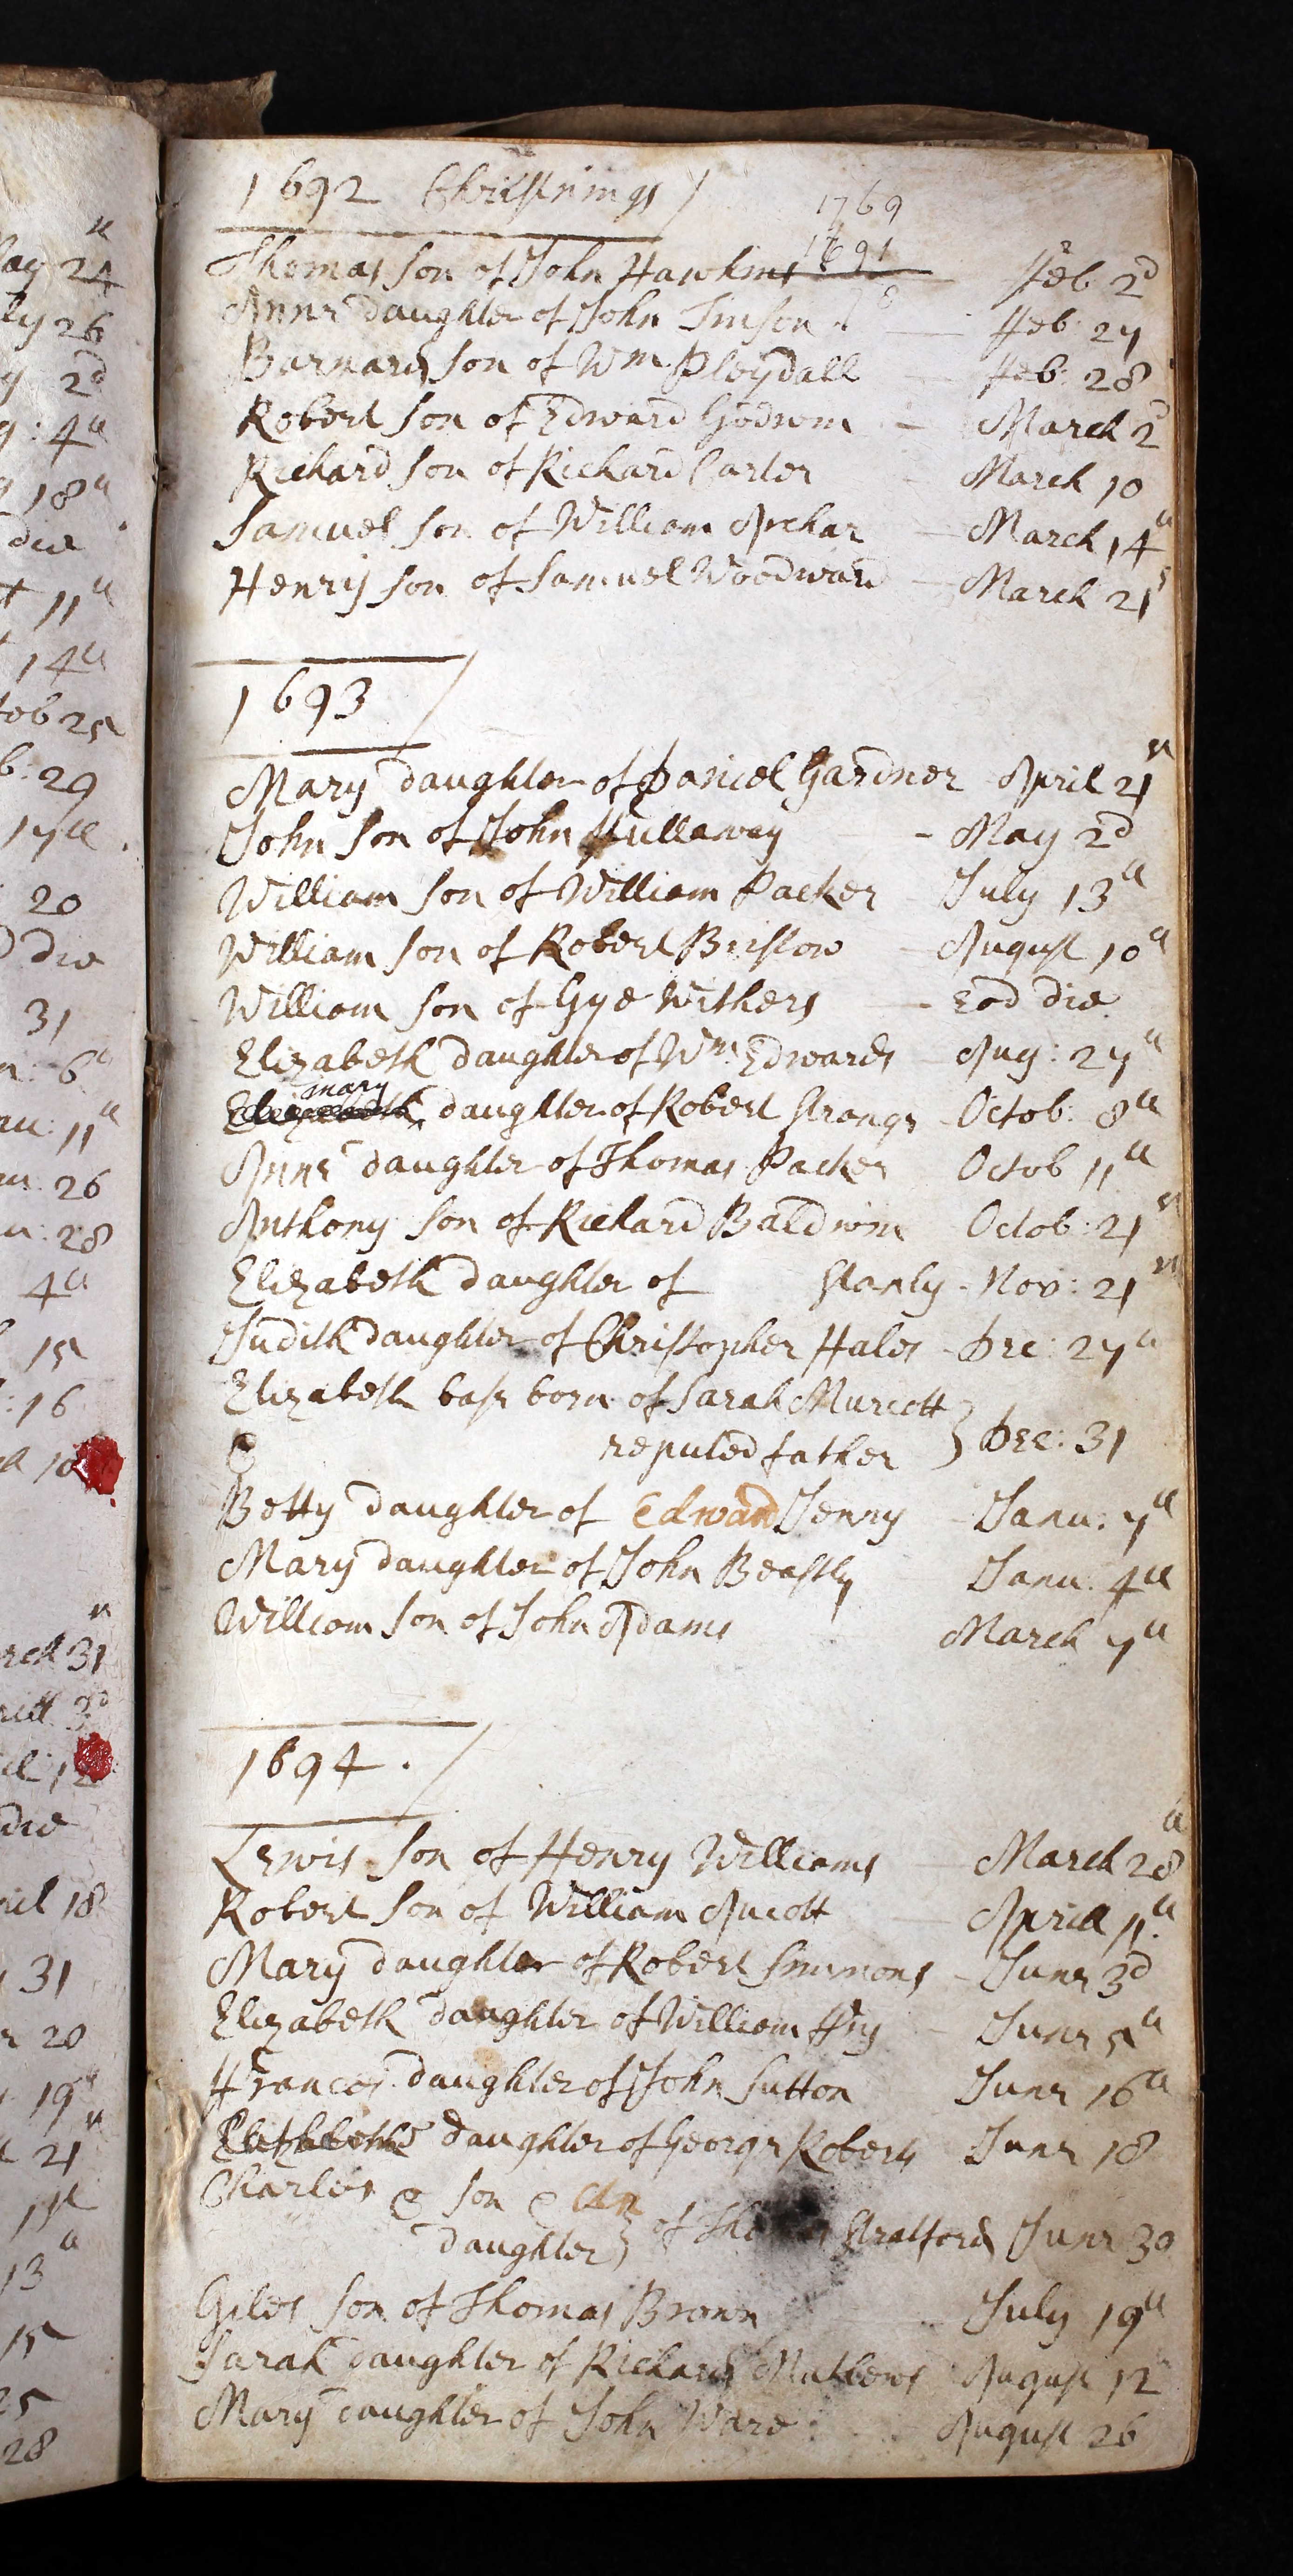 1692 Christnings
1769
1691
78
Thomas son of John Hawkins Feb 2d
Anne daughter of John Timson Feb: 27
Barnard son of Wm Pleydall Feb: 28
Robert son of Edward Godwin March 2d
Richard son of Richard Carter March 10
Samuel son of William Archar March 14th
Henry son of Samuel Woodward March 21s
1693
Mary daughter of Daniel Gardner April 21st
John son of John Hullaway May 2d
William son of William Packer July 13th
William son of Robert Bristow August 10th
William son of Gye Withers Eod die
Elizabeth daughter of Wm: Edwards Aug: 27th
mary
Elizabeth daughter of Robert Strange Octob: 8th
Anne daughter of Thomas Packer Octob 11th
Anthony son of Richard Baldwin Octob: 21st
Elizabeth daughter of Stanly Nov: 21st
Judith daughter of Christopher Hales Dec: 27th
Elizabeth base born of Sarah Murcott
& reputed father } Dec: 31
Betty daughter of Edward Jenny Janu: 7th
Mary daughter of John Beastly Janu: 4th
William son of John Adams March 7th
1694.
Lewis son of Henry Williams March 28th
Robert son of William Aucott Aprill 11th
Mary daughter of Robert Simmons June 3d
Elizabeth daughter of William Fry June 5th
Frances daughter of John Sutton June 16th
daughter of George Roberts June 18
Charles & son & An
daughter } of Thomas Stratford June 30
Giles son of Thomas Brown July 19th
Sarah daughter of Richard Mathews August 12
Mary daughter of John Ward August 26